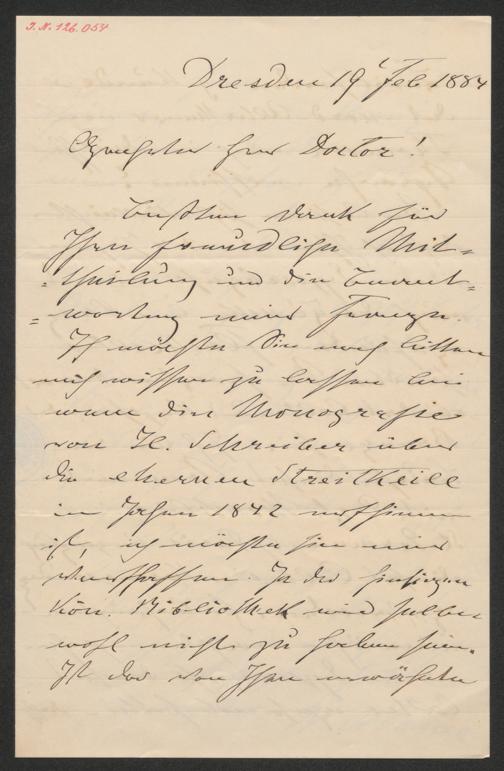 J. N. 126.054
Dresden 19 Feb 1884
Geehrter Herr Doctor!
Besten Dank für
Ihre freundliche Mit-
theilung und die Beant-
wortung meiner Fragen.
Ich möchte Sie noch bitten
mich wissen zu lassen bei
wem die Monografie
von H. Schreiber über
die ehernen Streitkeile
im Jahre 1842 erschienen
ist, ich möchte sie mir
verschaffen. In der hiesigen
Kön. Bibliothek wird selbe
wohl nicht zu haben sein.
Ist das von Ihnen erwähnte